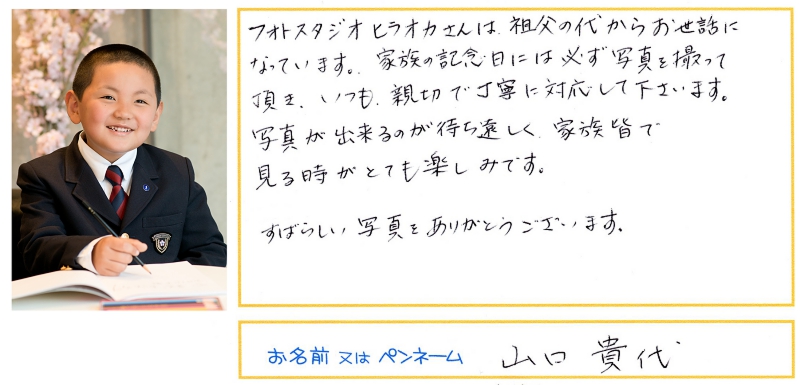 フォトスタジオヒラオカさんは、祖父の代からお世話に
なっています。家族の記念日には必ず写真を撮って
頂き、いつも、親切で丁寧に対応して下さいます。
写真が出来るのが待ち遠しく、家族皆で
見る時がとても楽しみです。
すばらしい写真をありがとうございます。
お名前 又は ペンネーム 山口 貴代